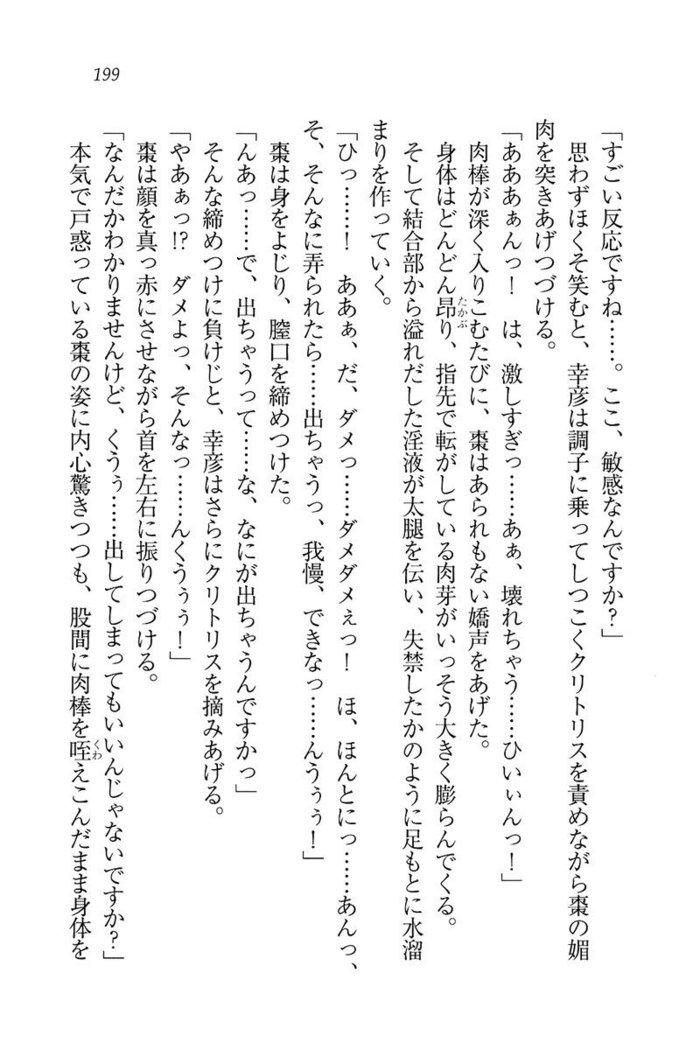 199
「すごい反応ですね……。ここ、敏感なんですか？」
思わずほくそ笑むと、幸彦は調子に乗ってしつこくクリトリスを責めながら棗の媚
肉を突きあげつづける。
「あああぁんっ！　は、激しすぎっ……あぁ、壊れちゃう……ひいぃんっ！」
肉棒が深く入りこむたびに、棗はあられもない嬌声をあげた。
身体はどんどん昂り、指先で転がしている肉芽がいっそう大きく膨らんでくる。
たかぶ
そして結合部から溢れだした淫液が太腿を伝い、失禁したかのように足もとに水溜
まりを作っていく。
「ひっ……！　ああぁ、だ、ダメっ……ダメダメぇっ！　ほ、ほんとにっ……あんっ、
そ、そんなに弄られたら……出ちゃうっ、我慢、できなっ……んうぅぅ！」
棗は身をよじり、膣口を締めつけた。
「んあっ……で、出ちゃうって……な、なにが出ちゃうんですかっ」
そんな締めつけに負けじと、幸彦はさらにクリトリスを摘みあげる。
「やあぁっ!?　ダメよっ、そんなっ……んくうぅぅ！」
棗は顔を真っ赤にさせながら首を左右に振りつづける。
「なんだかわかりませんけど、くうぅ……出してしまってもいいんじゃないですか？」
本気で戸惑っている棗の姿に内心驚きつつも、股間に肉棒を咥えこんだまま身体を
くわ